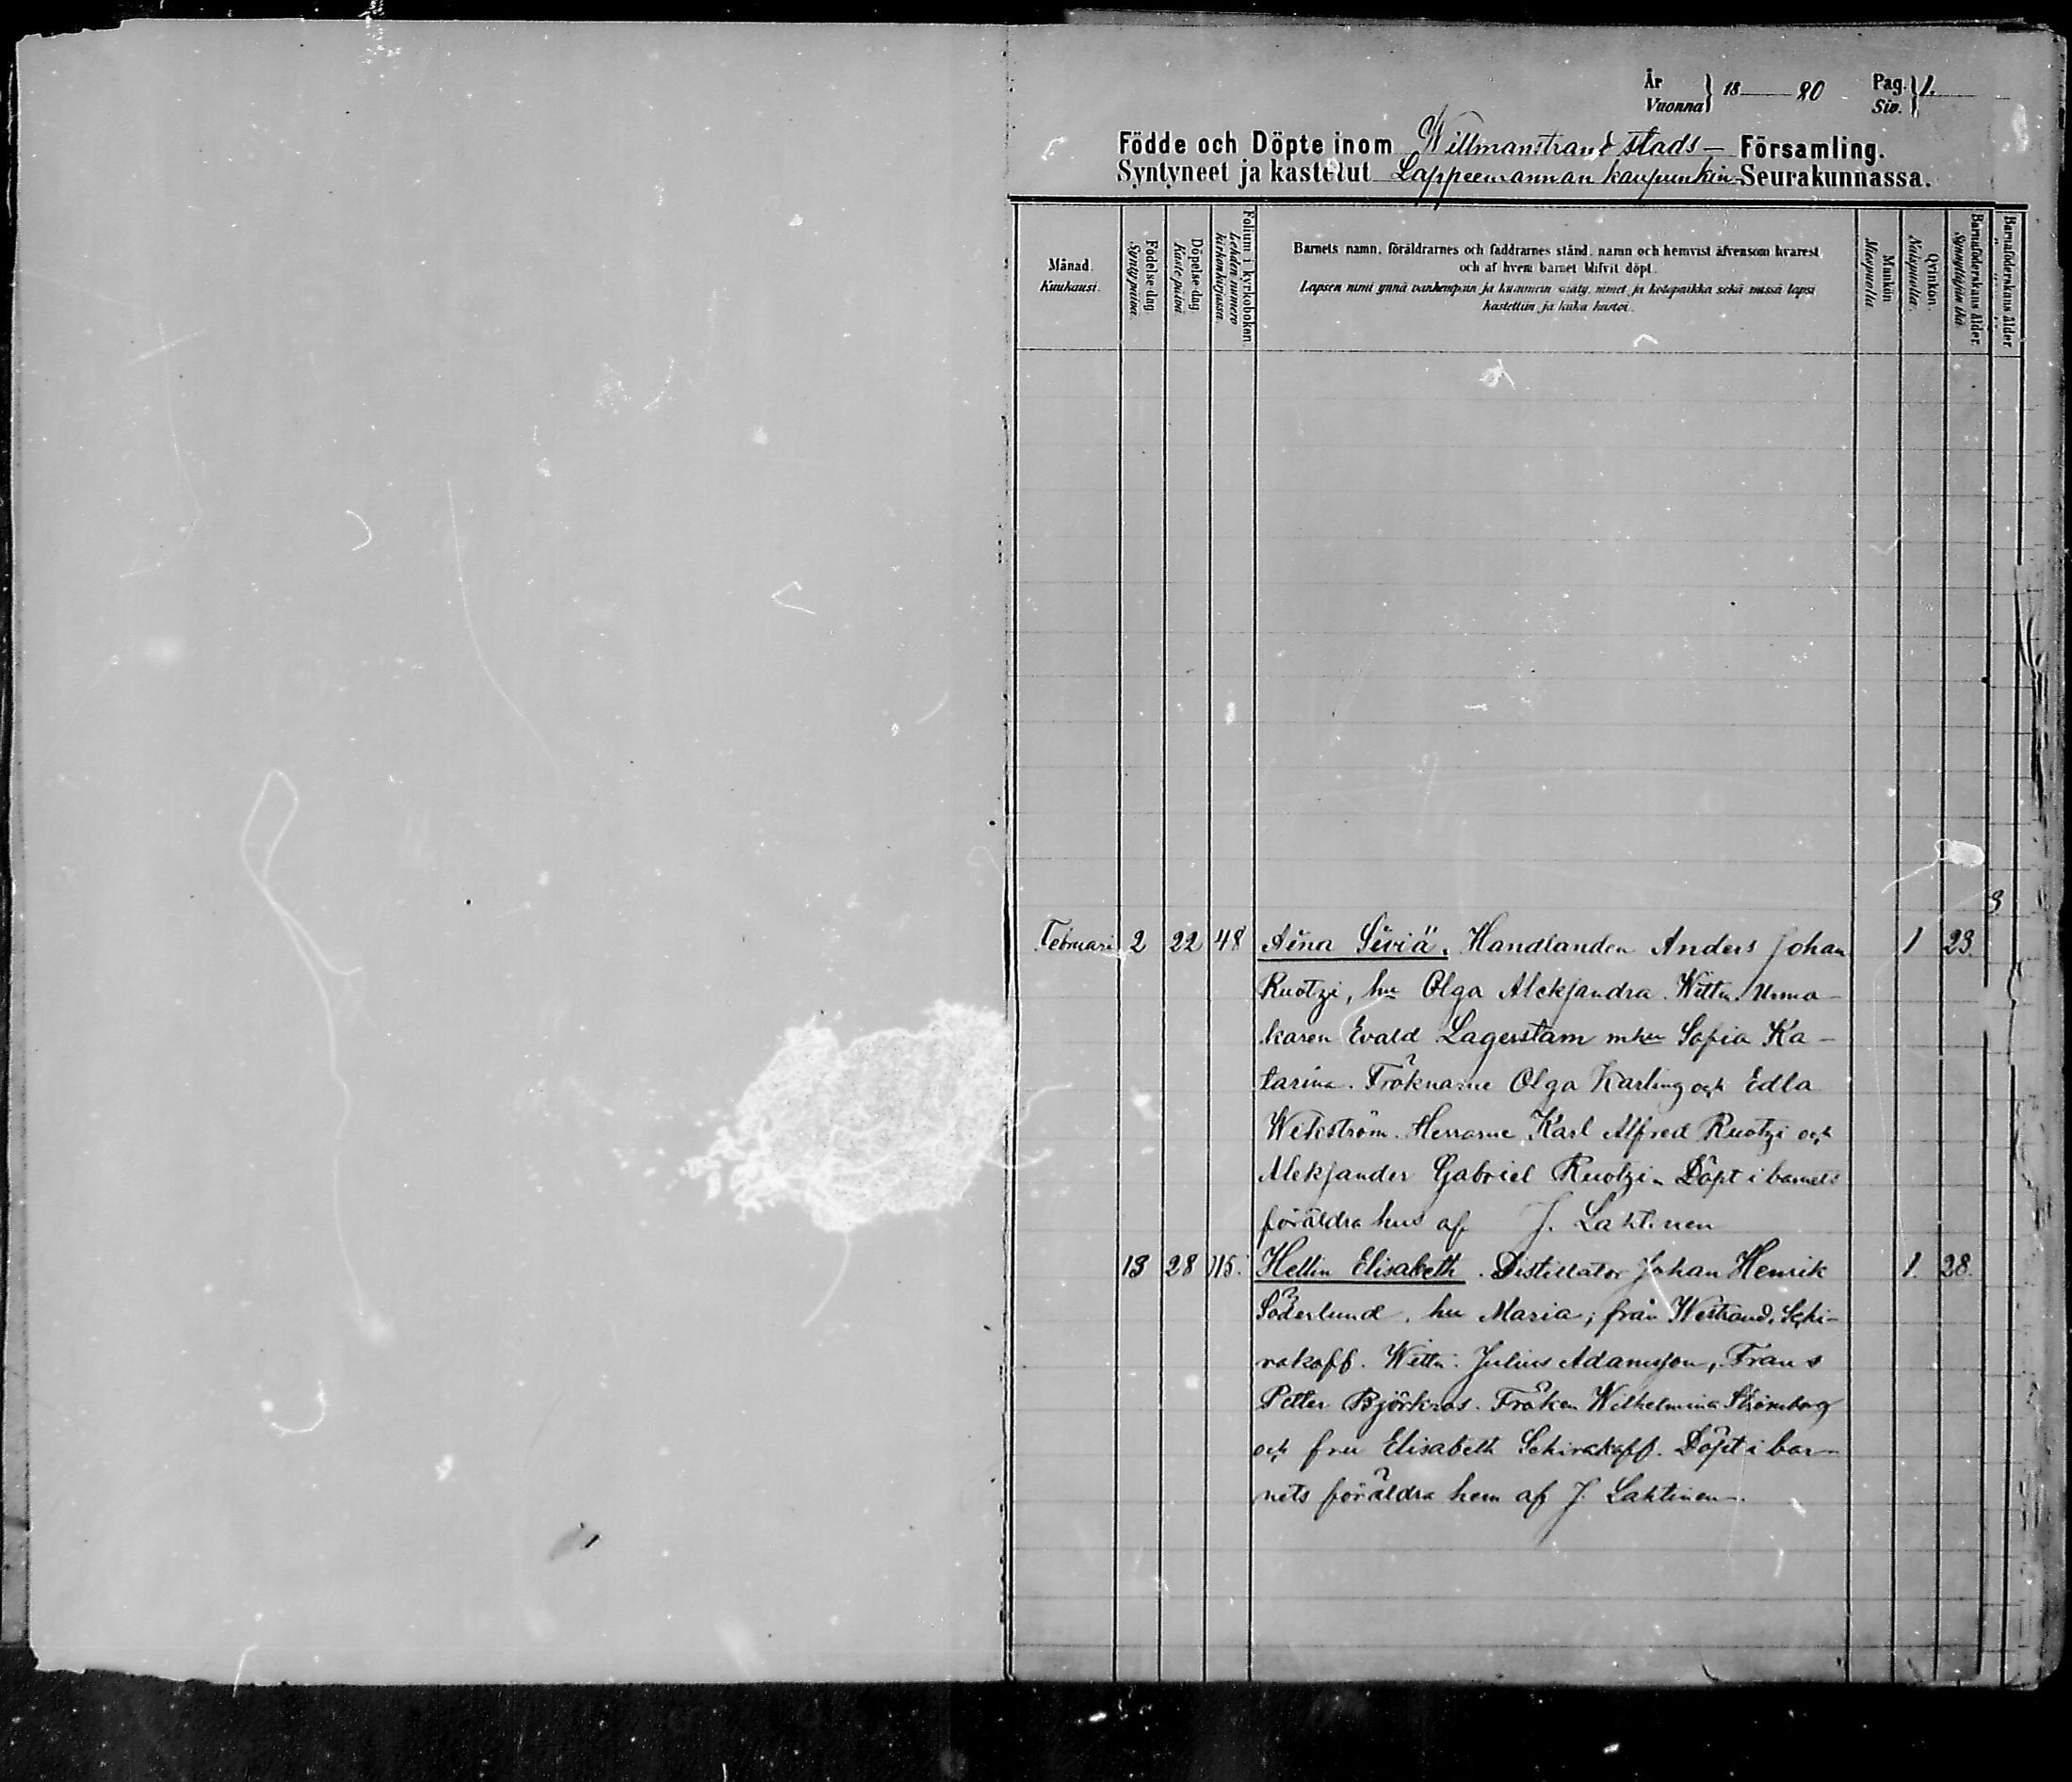 År
Vuonna } 18 80 Pag.
Siv. } 1.
Födde och Döpte inom Willmanstrand stads – Församling.
Syntyneet ja kastetut Lappeenrannan kaupunkin Seurakunnassa.
Månad.
Kuukausi.
Födelse-dag.
Syntypäivä.
Döpelse-dag.
Kastepäivä
Folium i kyrkoboken.
Lehden numero
kirkonkirjassa.
Barnets namn, föräldrarnes och faddrarnes stånd, namn och hemvist äfvensom hvarest
och af hvem barnet blifvit döpt.
Lapsen nimi ynnä vanhempain ja kummein sääty, nimet ja kotopaikka sekä missä lapsi
kastettiin ja kuka kastoi.
Mankön
Miespuolia.
Qvinkön.
Naispuolia.
Barnaföderskans ålder.
Synnyttäjän ikä.
Barnaföderskans ålder
Februari 2 22 48 Aina Siviä. Handlanden Anders Johan 1 23.
Ruotzi, hu Olga Alekſandra. Wittn. Urma-
karen Evald Lagerstam m hu Sofia Ka-
tarina. Fröknarne Olga Karling och Edla
Wekström. Herrarne Karl Alfred Ruotzi och
Alekſander Gabriel Ruotzi. Döpt i barnets
föräldra hus af J. Lahtinen
13 28 115. Hellin Elisabeth. Distillator Johan Henrik 1. 28.
Söderlund, hu Maria, från Wstrand. Schi-
rakoff. Wittn: Julius Adamsſon, Frans
Petter Björkros. Fröken Wilhelmina Strömborg
och fru Elisabeth Schirakoff. Döpt i bar-
nets föräldra hem af J. Lahtinen.